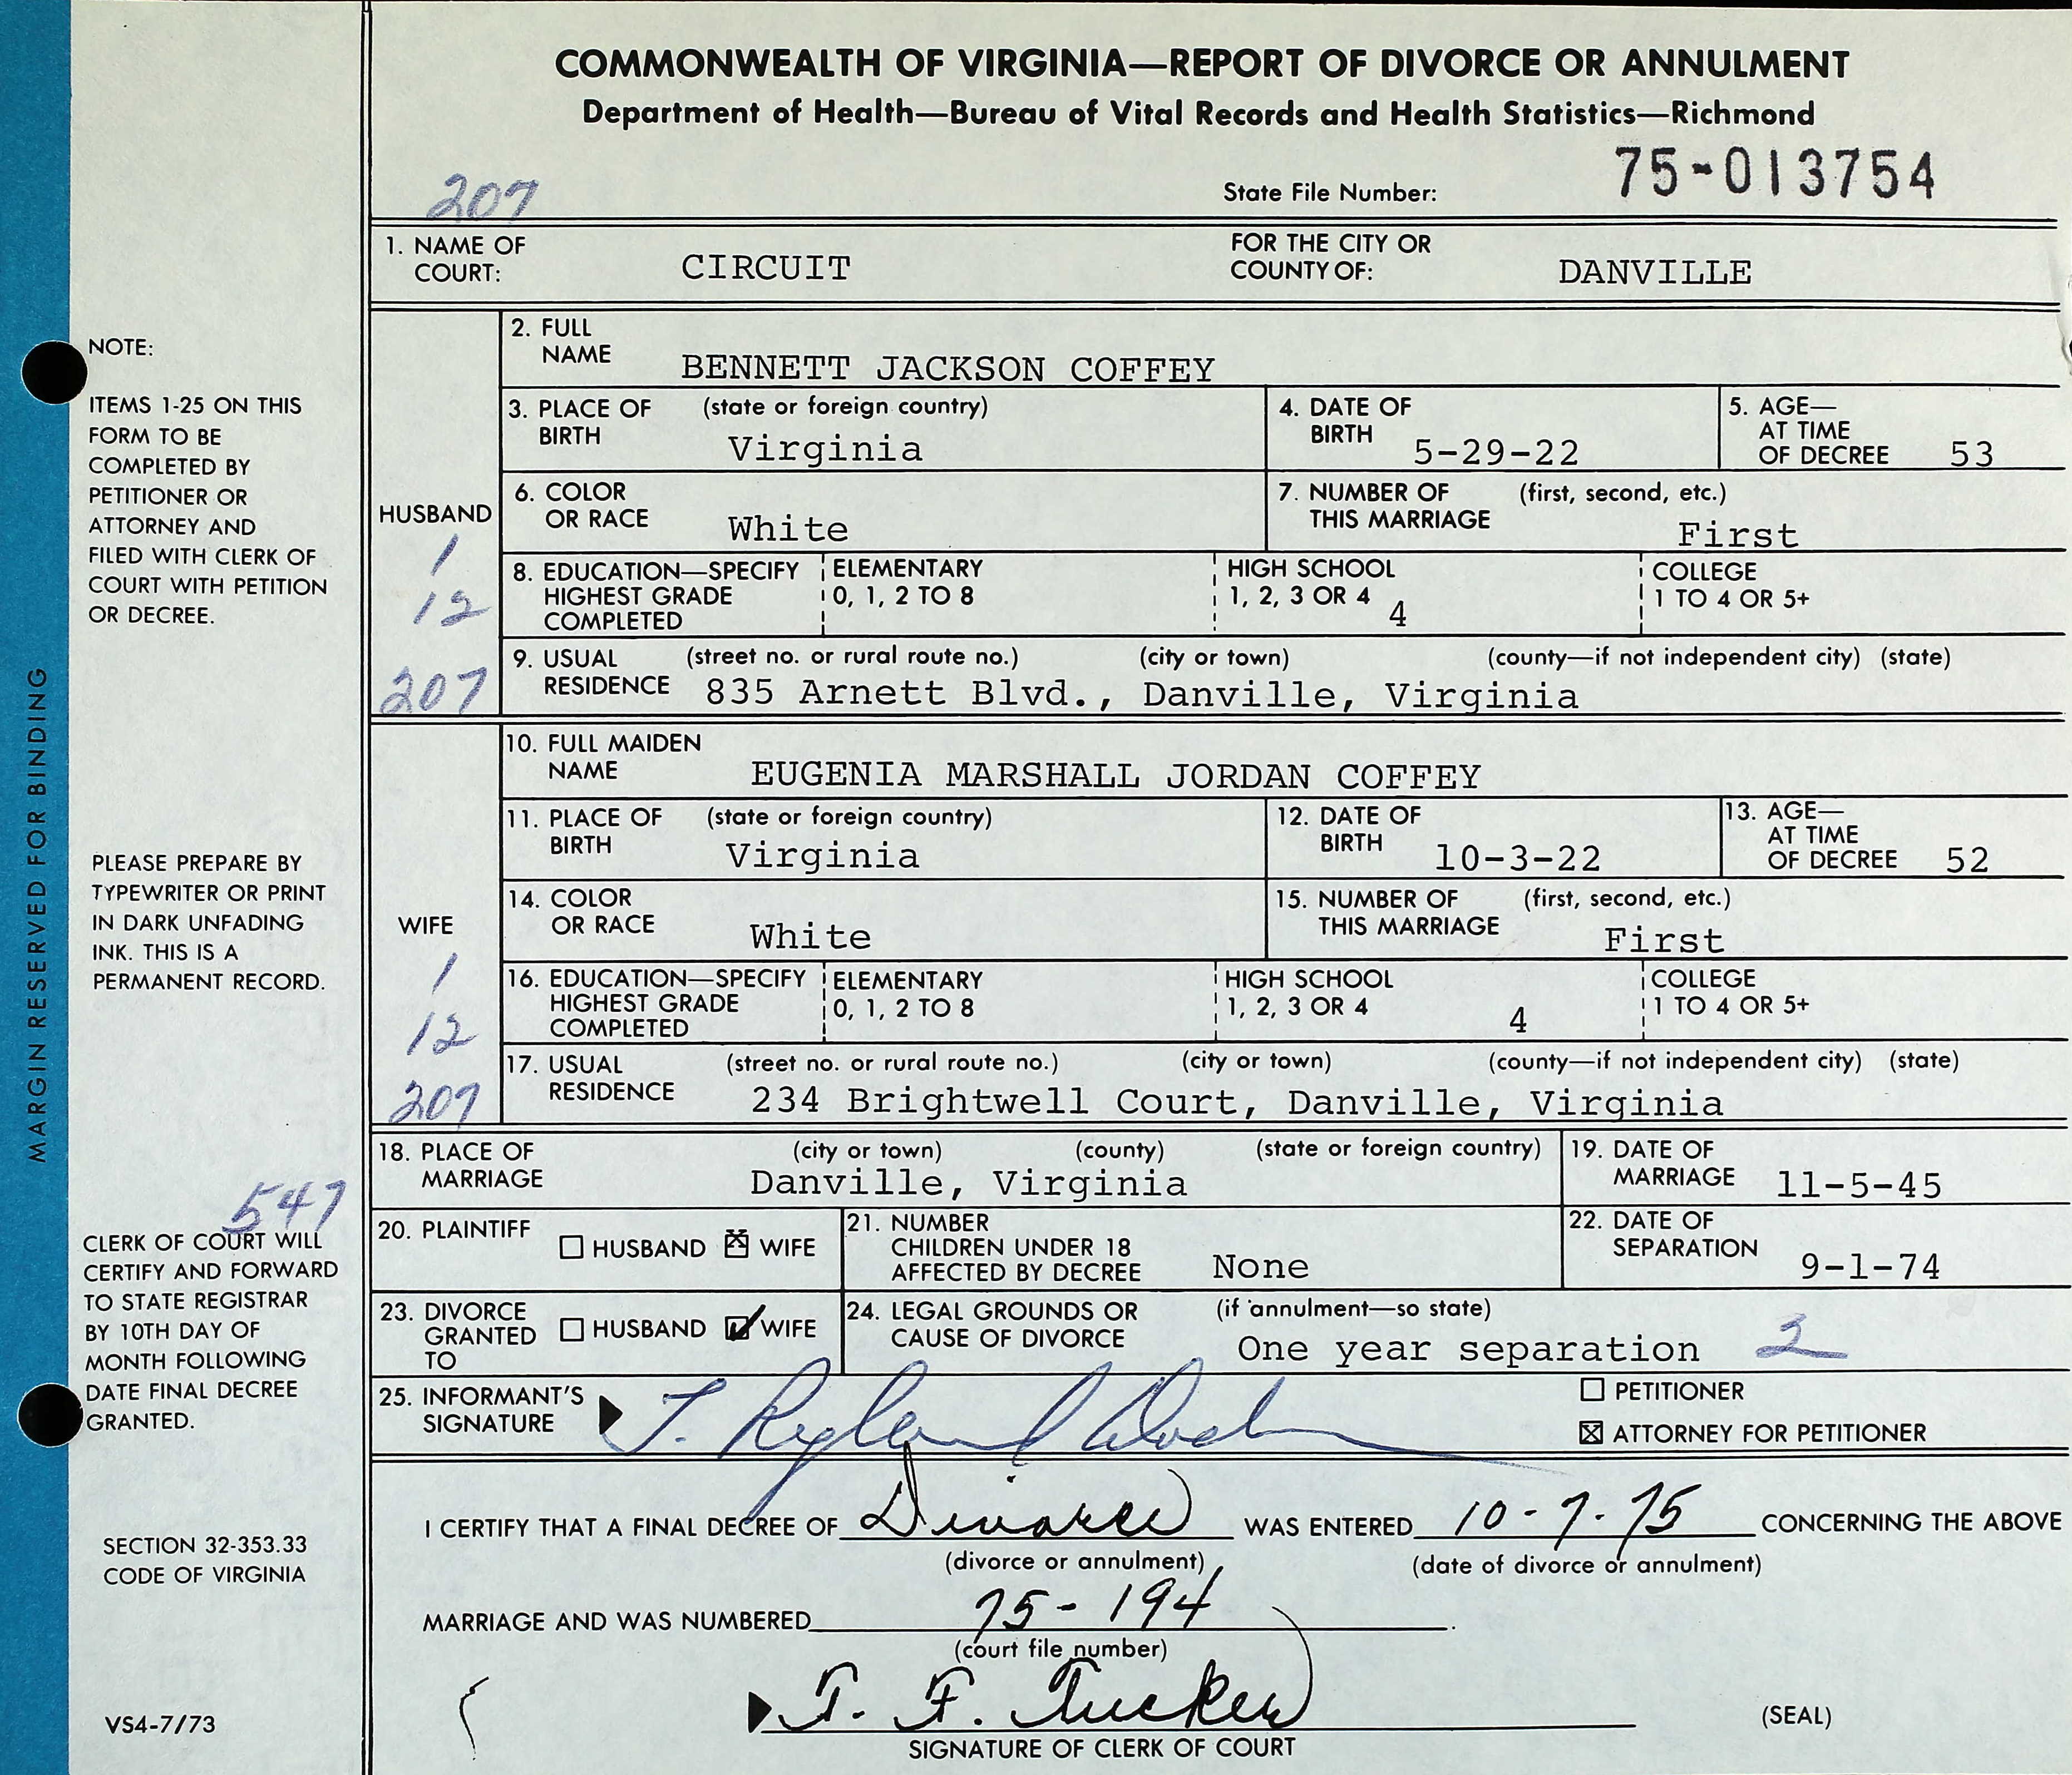 COMMONWEALTH OF VIRGINIA—REPORT OF DIVORCE OR ANNULMENT
Department of Health—Bureau of Vital Records and Health Statistics—Richmond
207
State File Number: 75-013754
1. NAME OF COURT: CIRCUIT FOR THE CITY OR COUNTY OF: DANVILLE
HUSBAND
1
12
207
2. FULL NAME BENNETT JACKSON COFFEY
3. PLACE OF BIRTH (state or foreign country) Virginia 4. DATE OF BIRTH 5-29-22 5. AGE—AT TIME OF DECREE 53
6. COLOR OR RACE White 7. NUMBER OF THIS MARRIAGE (first, second, etc.) First
8. EDUCATION—SPECIFY HIGHEST GRADE COMPLETED ELEMENTARY 0, 1, 2 TO 8 HIGH SCHOOL 1, 2, 3 OR 4 4 COLLEGE 1 TO 4 OR 5+
9. USUAL RESIDENCE (street no. or rural route no.) (city or town) (county—if not independent city) (state)
835 Arnett Blvd., Danville, Virginia
WIFE
1
12
207
10. FULL MAIDEN NAME EUGENIA MARSHALL JORDAN COFFEY
11. PLACE OF BIRTH (state or foreign country) Virginia 12. DATE OF BIRTH 10-3-22 13. AGE—AT TIME OF DECREE 52
14. COLOR OR RACE White 15. NUMBER OF THIS MARRIAGE (first, second, etc.) First
16. EDUCATION—SPECIFY HIGHEST GRADE COMPLETED ELEMENTARY 0, 1, 2 TO 8 HIGH SCHOOL 1, 2, 3 OR 4 4 COLLEGE 1 TO 4 OR 5+
17. USUAL RESIDENCE (street no. or rural route no.) (city or town) (county—if not independent city) (state)
234 Brightwell Court, Danville, Virginia
18. PLACE OF MARRIAGE (city or town) (county) (state or foreign country) Danville, Virginia 19. DATE OF MARRIAGE 11-5-45
20. PLAINTIFF ☐ HUSBAND ☒ WIFE 21. NUMBER CHILDREN UNDER 18 AFFECTED BY DECREE None 22. DATE OF SEPARATION 9-1-74
23. DIVORCE GRANTED TO ☐ HUSBAND ☑ WIFE 24. LEGAL GROUNDS OR CAUSE OF DIVORCE (if annulment—so state) One year separation 2
25. INFORMANT'S SIGNATURE T. Ryland ☐ PETITIONER
☒ ATTORNEY FOR PETITIONER
I CERTIFY THAT A FINAL DECREE OF Divorce WAS ENTERED 10-7-75 CONCERNING THE ABOVE
(divorce or annulment) (date of divorce or annulment)
MARRIAGE AND WAS NUMBERED 75-194.
(court file number)
T. F. Tucker
SIGNATURE OF CLERK OF COURT
(SEAL)
MARGIN RESERVED FOR BINDING
NOTE:
ITEMS 1-25 ON THIS
FORM TO BE
COMPLETED BY
PETITIONER OR
ATTORNEY AND
FILED WITH CLERK OF
COURT WITH PETITION
OR DECREE.
PLEASE PREPARE BY
TYPEWRITER OR PRINT
IN DARK UNFADING
INK. THIS IS A
PERMANENT RECORD.
547
CLERK OF COURT WILL
CERTIFY AND FORWARD
TO STATE REGISTRAR
BY 10TH DAY OF
MONTH FOLLOWING
DATE FINAL DECREE
GRANTED.
SECTION 32-353.33
CODE OF VIRGINIA
VS4-7/73